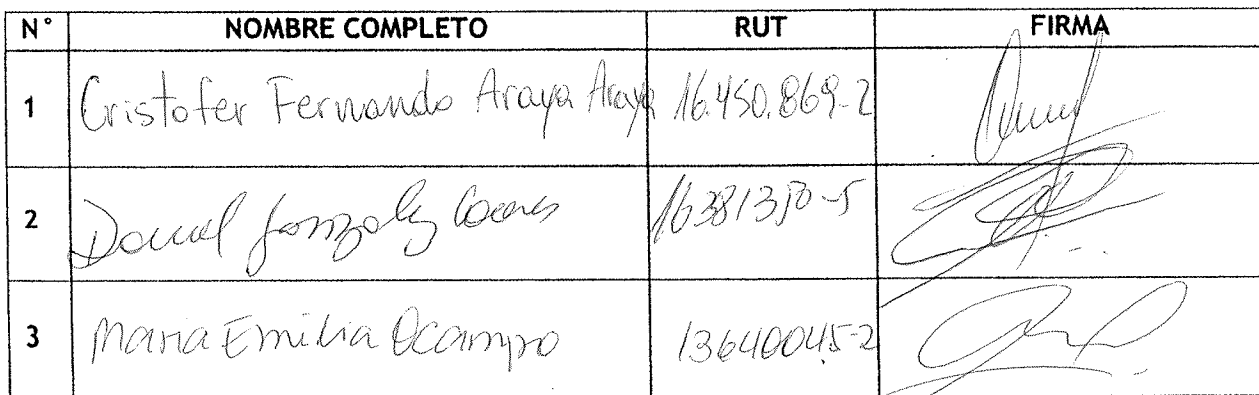 N° NOMBRE COMPLETO RUT FIRMA
1 Cristofer Fernando Araya Araya 16.450.869-2
2 Daniel González 16381350-5
3 Maria Emilia Ocampo 13640045-2